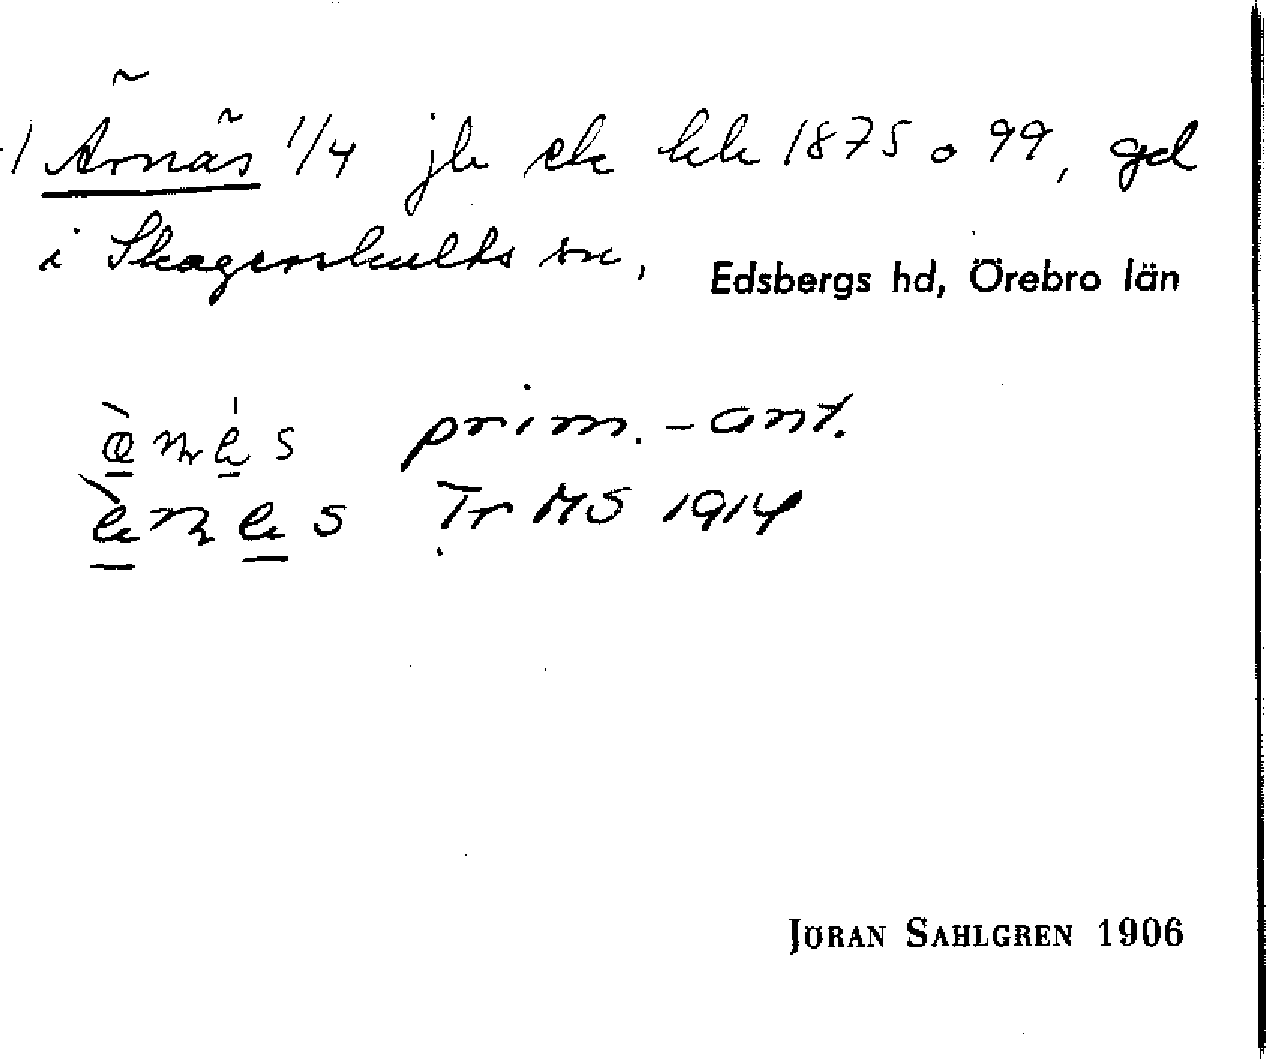 Ärnäs 1/4 jb ek kk 1875 o 99, gd
i Skagershults sn, Edsbergs hd, Örebro län
prim.-ant.
Tr MS 1914
JÖRAN SAHLGREN 1906